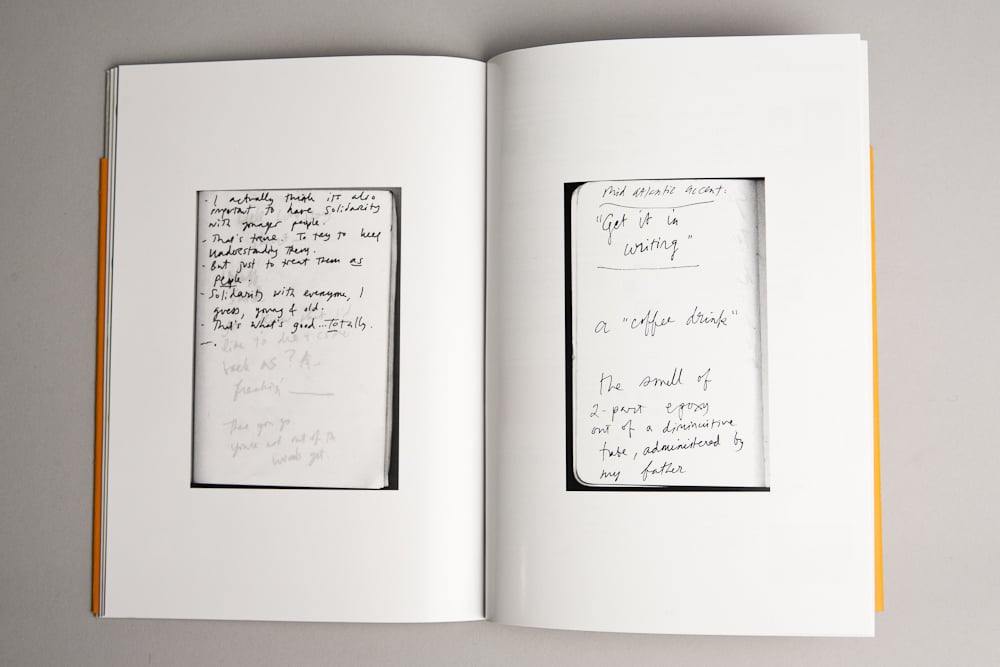 - I actually think it's also
important to have solidarity
with younger people.
- That's true. To try to keep
understanding them.
- But just to treat them as
people.
- Solidarity with everyone, I
guess, young & old.
- That's what's good...totally.
—.
like to die & come
back as? A
freakin' ——
There you go
You're not out of th
woods yet.
Mid Atlantic Accent:
"Get it in
writing"
a "coffee drink"
the smell of
2-part epoxy
out of a diminutive
tube, administered by
my father